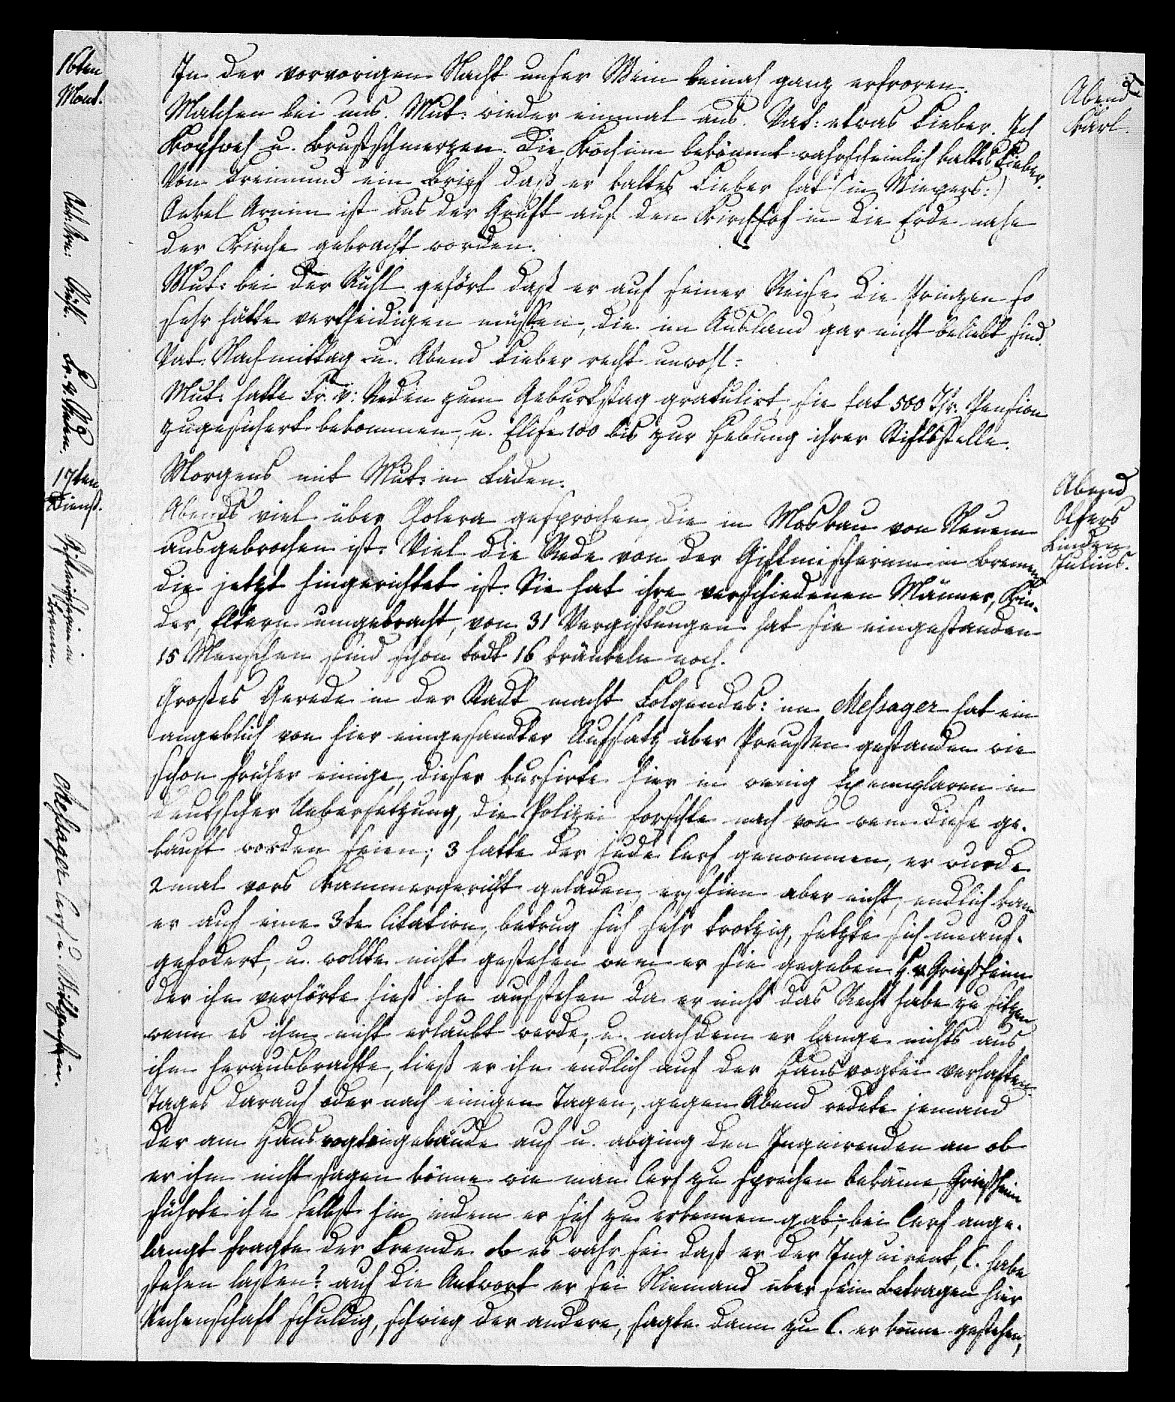 16ten
Mond.
In der vorvorigen Nacht unser Wein beinah ganz erfroren.
Malchen bei uns. Mut: wieder einmal aus. Vat: etwas Fieber. Ich
Kopfweh u. Brustschmerzen. Die Köchinn bekömmt wahrscheinlich kaltes Fieber.
Von Freimund ein Brief daß er kaltes Fieber hat (in Wiepers:)
Onkel Arnim ist aus der Gruft auf den Kirchhof in die Erde nahe
der Kirche gebracht worden.
Mut: bei der Rühl gehört daß er auf seiner Reise die Prinzen so
sehr hätte vertheidigen müssen, die im Ausland gar nicht beliebt sind.
Vat. Nachmittag u. Abend Fieber recht unwohl.
Mut: hatte Fr. v: Reden zum Geburtstag gratulirt, sie hat 500 Thr. Pension
zugesichert bekommen, u. Elise 100 bis zur Hebung ihrer Stiftsstelle.
Abend
Karl.
17ten
Dienst.
Morgens mit Mut: in Läden.
Abends viel über Cholera gesprochen die in Moskau von Neuem
ausgebrochen ist. Viel die Rede von der Giftmischerinn in Bremen
die jetzt hingerichtet ist. Sie hat ihre verschiedenen Männer, Kin-
der, Eltern umgebracht, von 31 Vergiftungen hat sie eingestanden
15 Menschen sind schon todt 16 kränkeln noch.
Abend
Olfers
Julius.
Giftmischerin in
Bremen.
Großes Gerede in der Stadt macht Folgendes: im Messager hat ein
angeblich von hier eingesandter Aufsatz über Preußen gestanden wie
schon früher einige, dieser kursirte hier in wenig Exemplaren in
deutscher Uebersetzung, die Polizei forschte nach von wem diese ge-
kauft worden seien; 3 hatte der Jude Cerf genommen, er wurde
2mal vors Kammergericht geladen, erschien aber nicht, endlich kam
er auf eine 3te Citation, betrug sich sehr trotzig, setzte sich unauf-
gefodert, u. wollte nicht gestehen wem er sie gegeben H. v Griesheim
der ihn verhörte hieß ihn aufstehen da er nicht das Recht habe zu sitzen
wenn es ihm nicht erlaubt werde, u. nachdem er lange nichts aus
ihm herausbrachte, ließ er ihn endlich auf der Hausvogtei verhaften.
Tages darauf oder nach einigen Tagen, gegen Abend redete jemand
der am Hausvogteigebäude auf u. abging den Inquirenden an ob
er ihm nicht sagen könne wie man Cerf zu sprechen bekäme, Griesheim
führte ihn selbst hin indem er sich zu erkennen gab; bei Cerf ange-
langt fragte der Fremde ob es wahr sei daß er der Inquirent, C. habe
stehen lassen? auf die Antwort er sei Niemand über sein Betragen hier
Rechenschaft schuldig, schwieg der andere, sagte dann zu C. er könne gestehen,
Messager Cerf u. Wittgenstein.